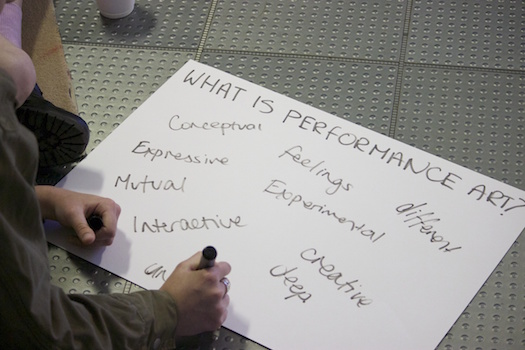 WHAT IS PERFORMANCE ART?
Conceptual
Expressive
feelings
Mutual
Exoperimental
different
Interactive
creative
deep